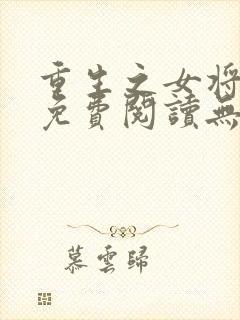 重生之女將
免費閱讀無
慕雲歸